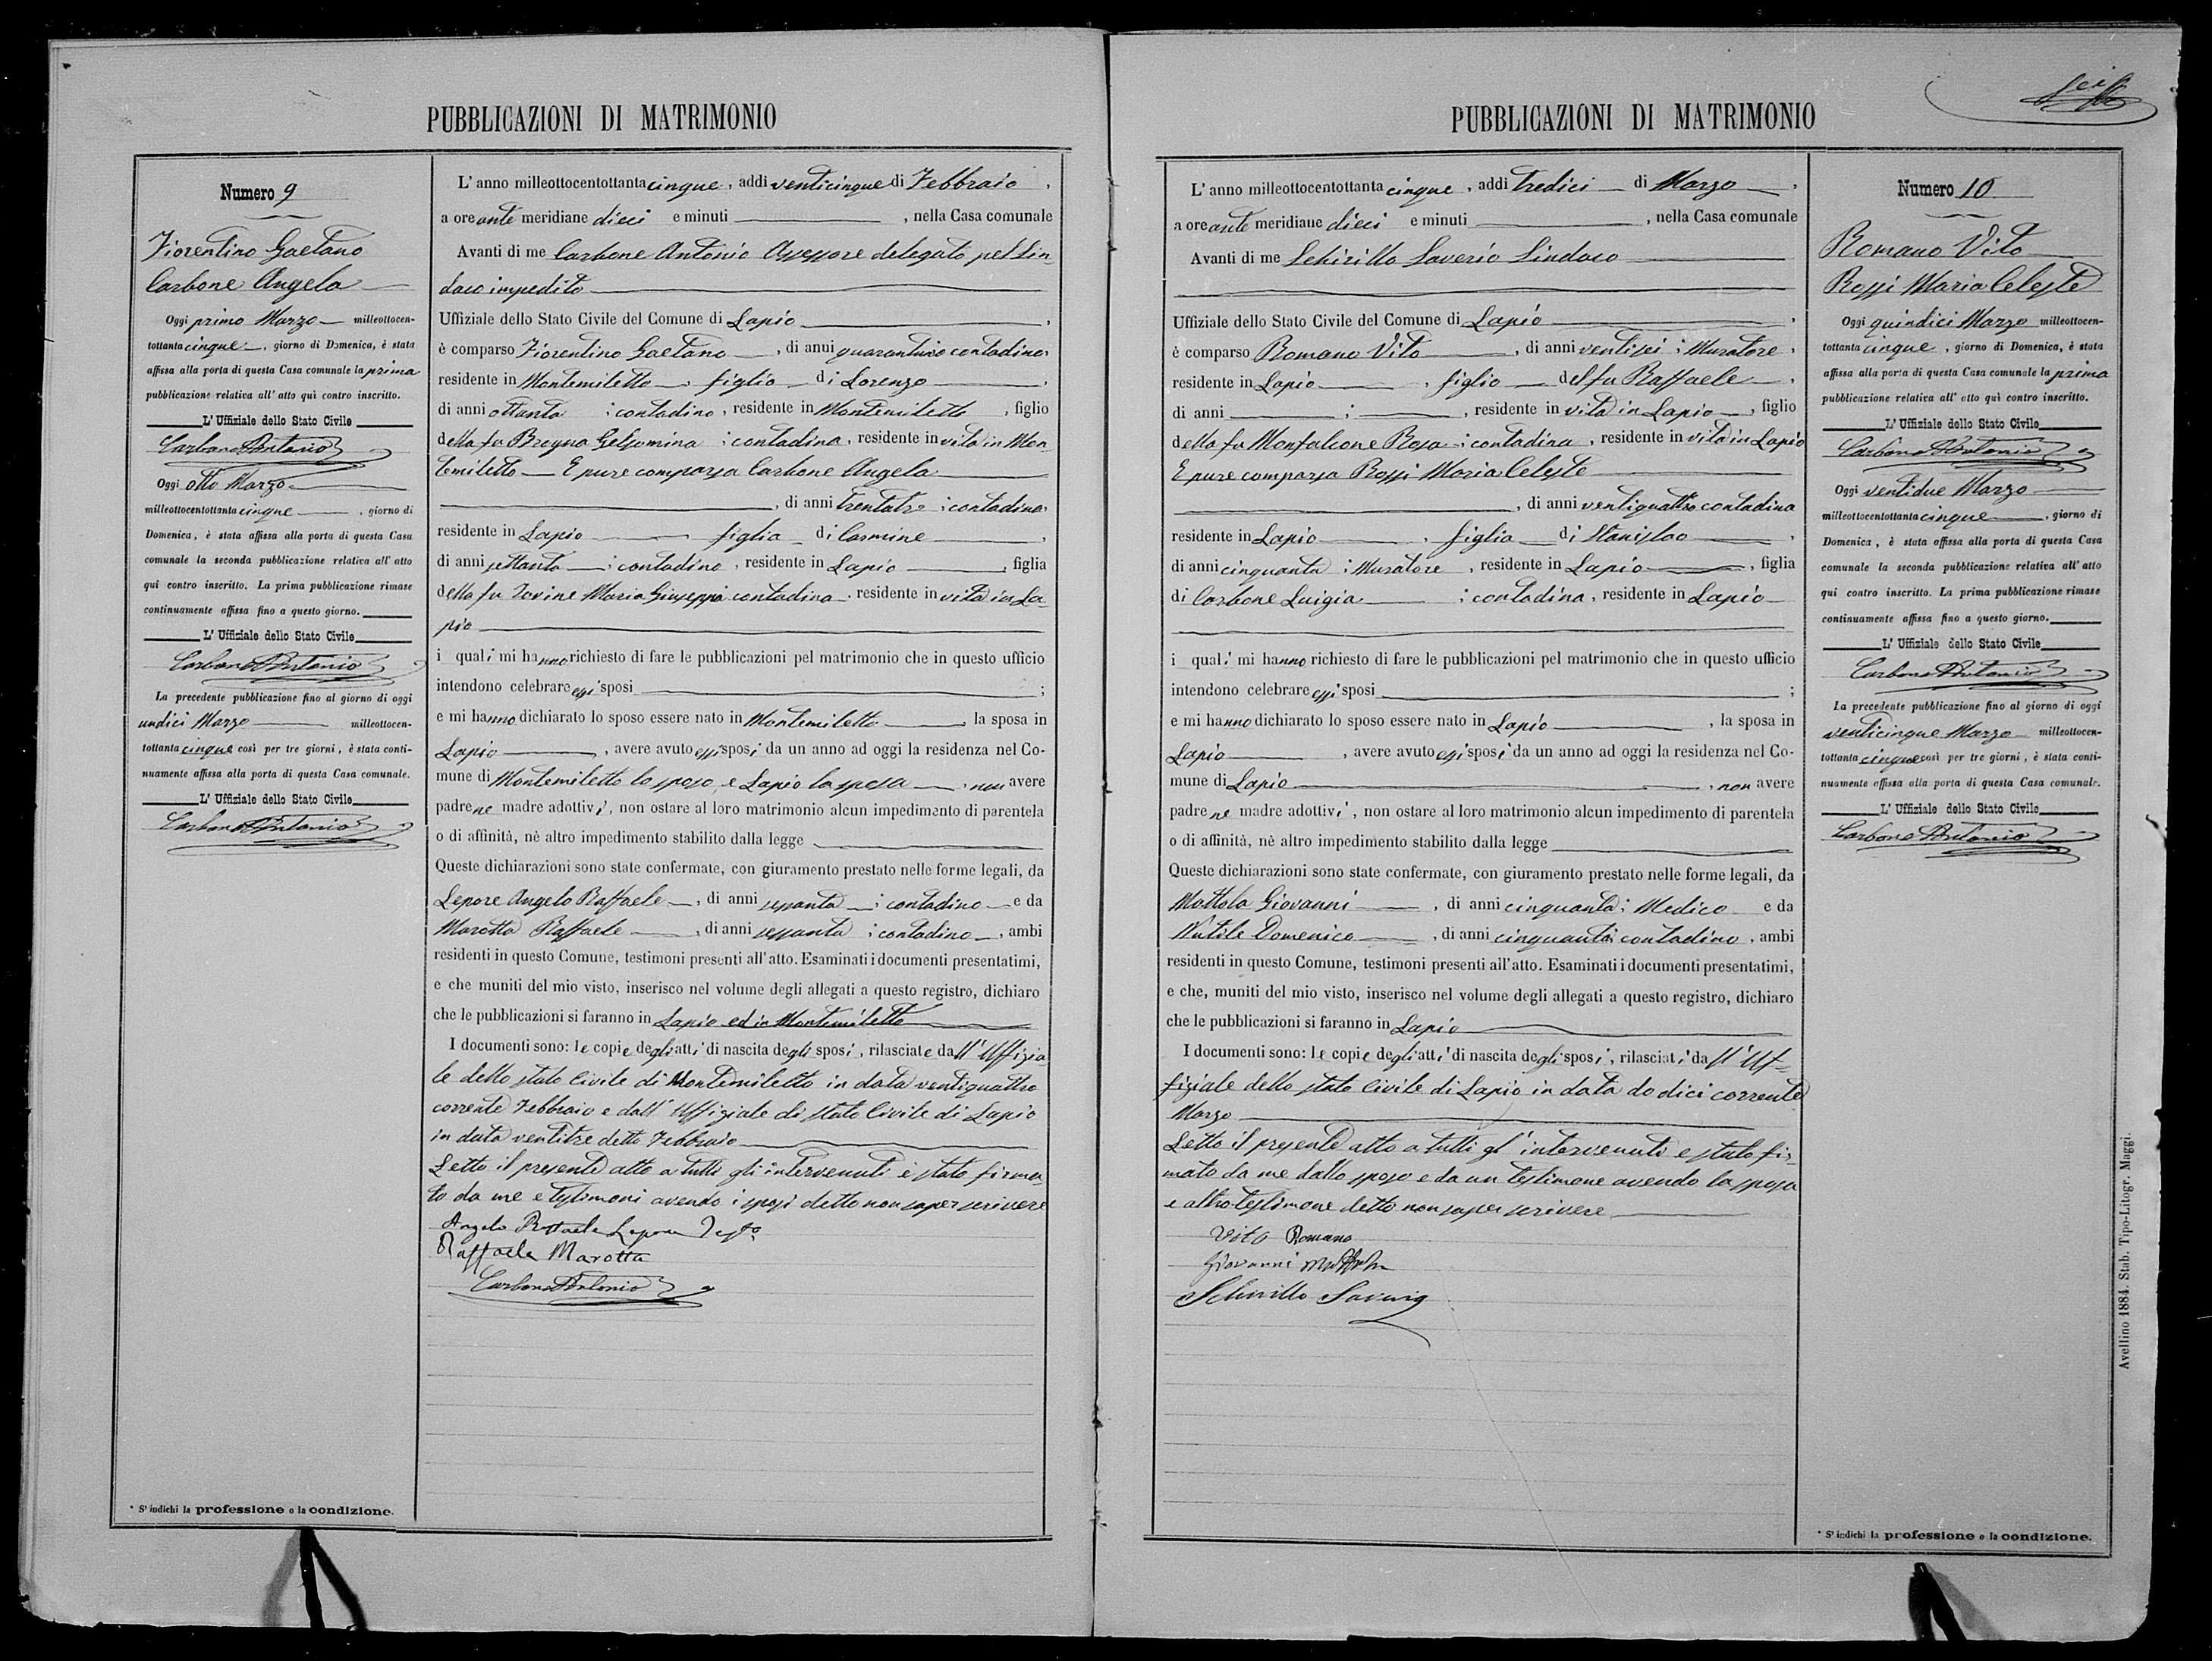 PUBBLICAZIONI DI MATRIMONIO
Numero 9
Fiorentino Gaetano
Carbone Angela
Oggi primo Marzo milleottocen-
tottantacinque, giorno di Domenica, è stata
affissa alla porta di questa Casa comunale la prima
pubblicazione relativa all' atto quì contro inscritto.
L' Uffiziale dello Stato Civile
Carbone Antonio
Oggi otto Marzo
milleottocentottantacinque, giorno di
Domenica, è stata affissa alla porta di questa Casa
comunale la seconda pubblicazione relativa all' atto
quì contro inscritto. La prima pubblicazione rimase
continuamente affissa fino a questo giorno.
L' Uffiziale dello Stato Civile
Carbone Antonio
La precedente pubblicazione fino al giorno di oggi
undici Marzo milleottocen-
tottantacinque così per tre giorni, è stata conti-
nuamente affissa alla porta di questa Casa comunale.
L' Uffiziale dello Stato Civile
Carbone Antonio
* S' indichi la professione o la condizione.
L' anno milleottocentottantacinque, addi venticinque di Febbraio,
a ore ante meridiane dieci e minuti , nella Casa comunale
Avanti di me Carbone Antonio Assessore delegato pel Sin-
daco impedito
Uffiziale dello Stato Civile del Comune di Lapio,
è comparso Fiorentino Gaetano, di anni quarantuno contadino,
residente in Montemiletto, figlio di Lorenzo,
di anni ottanta ; contadino, residente in Montemiletto, figlio
della fu Bregna Gelsomina ; contadina, residente in vita in Mon-
temiletto E pure comparsa Carbone Angela
, di anni trentatre ; contadina,
residente in Lapio, figlia di Carmine,
di anni settanta ; contadino, residente in Lapio, figlia
della fu Iovine Maria Giuseppa contadina, residente in vita in La-
pio
i quali mi hanno richiesto di fare le pubblicazioni pel matrimonio che in questo ufficio
intendono celebrare essi sposi ;
e mi hanno dichiarato lo sposo essere nato in Montemiletto, la sposa in
Lapio, avere avuto essi sposi da un anno ad oggi la residenza nel Co-
mune di Montemiletto lo sposo, e Lapio la sposa, non avere
padre ne madre adottivi, non ostare al loro matrimonio alcun impedimento di parentela
o di affinità, nè altro impedimento stabilito dalla legge
Queste dichiarazioni sono state confermate, con giuramento prestato nelle forme legali, da
Lepore Angelo Raffaele, di anni sessanta ; contadino e da
Marotta Raffaele, di anni sessanta ; contadino, ambi
residenti in questo Comune, testimoni presenti all'atto. Esaminati i documenti presentatimi,
e che muniti del mio visto, inserisco nel volume degli allegati a questo registro, dichiaro
che le pubblicazioni si faranno in Lapio ed in Montemiletto
I documenti sono: le copie degli atti di nascita degli sposi, rilasciate dall' Uffizia-
le dello stato Civile di Montemiletto in data ventiquattro
corrente Febbraio e dall' Uffiziale di stato Civile di Lapio
in data ventitre detto Febbraio
Letto il presente atto a tutti gli intervenuti è stato firma-
to da me e testimoni avendo i sposi detto non saper scrivere
Angelo Raffaele Lepore
Raffaele Marotta
Carbone Antonio
PUBBLICAZIONI DI MATRIMONIO
L' anno milleottocentottantacinque, addi tredici di Marzo,
a ore ante meridiane dieci e minuti , nella Casa comunale
Avanti di me Schirillo Saverio Sindaco
Uffiziale dello Stato Civile del Comune di Lapio,
è comparso Romano Vito, di anni ventisei ; Muratore,
residente in Lapio, figlio del fu Raffaele,
di anni ; , residente in vita in Lapio, figlio
della fu Monfalcone Rosa ; contadina, residente in vita in Lapio
E pure comparsa Rossi Maria Celeste
, di anni ventiquattro contadina
residente in Lapio, figlia di Stanislao,
di anni cinquanta ; Muratore, residente in Lapio, figlia
di Carbone Luigia ; contadina, residente in Lapio
i quali mi hanno richiesto di fare le pubblicazioni pel matrimonio che in questo ufficio
intendono celebrare essi sposi ;
e mi hanno dichiarato lo sposo essere nato in Lapio, la sposa in
Lapio, avere avuto essi sposi da un anno ad oggi la residenza nel Co-
mune di Lapio, non avere
padre ne madre adottivi, non ostare al loro matrimonio alcun impedimento di parentela
o di affinità, nè altro impedimento stabilito dalla legge
Queste dichiarazioni sono state confermate, con giuramento prestato nelle forme legali, da
Mottola Giovanni, di anni cinquanta ; Medico e da
Nutile Domenico, di anni cinquanta contadino, ambi
residenti in questo Comune, testimoni presenti all'atto. Esaminati i documenti presentatimi,
e che, muniti del mio visto, inserisco nel volume degli allegati a questo registro, dichiaro
che le pubblicazioni si faranno in Lapio
I documenti sono: le copie degli atti di nascita degli sposi, rilasciati dall' Uf-
fiziale dello stato Civile di Lapio in data dodici corrente
Marzo
Letto il presente atto a tutti gl' intervenuti e stato fir-
mato da me dallo sposo e da un testimone avendo la sposa
e altro testimone detto non saper scrivere
Vito Romano
Giovanni Mottola
Schirillo Saverio
Numero 10
Romano Vito
Rossi Maria Celeste
Oggi quindici Marzo milleottocen-
tottantacinque, giorno di Domenica, è stata
affissa alla porta di questa Casa comunale la prima
pubblicazione relativa all' atto quì contro inscritto.
L' Uffiziale dello Stato Civile
Carbone Antonio
Oggi ventidue Marzo
milleottocentottantacinque, giorno di
Domenica, è stata affissa alla porta di questa Casa
comunale la seconda pubblicazione relativa all' atto
quì contro inscritto. La prima pubblicazione rimase
continuamente affissa fino a questo giorno.
L' Uffiziale dello Stato Civile
Carbone Antonio
La precedente pubblicazione fino al giorno di oggi
venticinque Marzo milleottocen-
tottantacinque così per tre giorni, è stata conti-
nuamente affissa alla porta di questa Casa comunale.
L' Uffiziale dello Stato Civile
Carbone Antonio
* S' indichi la professione o la condizione.
Avellino 1884. Stab. Tipo-Litogr. Maggi.